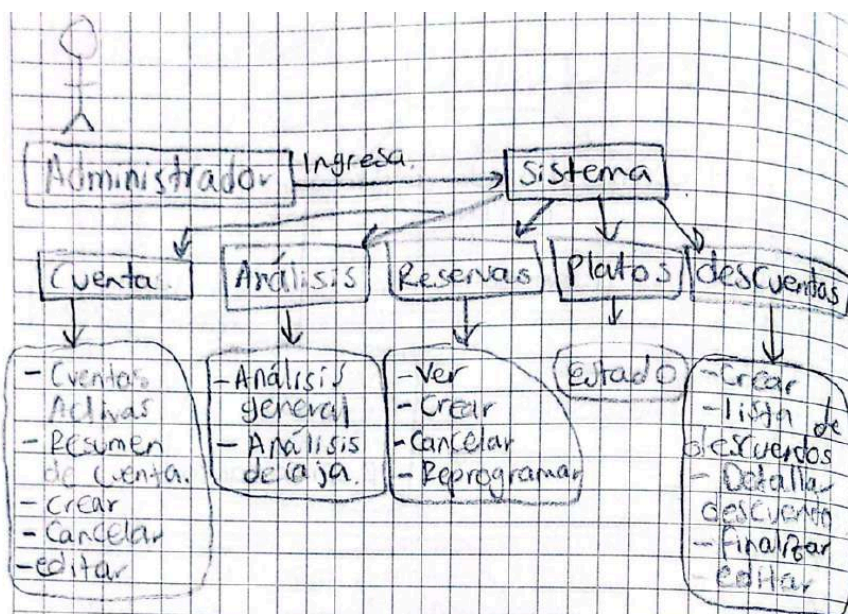 Administrador
Ingresa.
Sistema
Cuenta.
Análisis
Reservas
Platos
descuentos
- Cuentas
Activas
- Resumen
de cuenta.
- Crear
- Cancelar
- editar
- Análisis
general
- Análisis
de caja.
- Ver
- Crear
- Cancelar
- Reprogramar
Estado
- Crear
- lista de
descuentos
- Detallar
descuento
- Finalizar
- editar